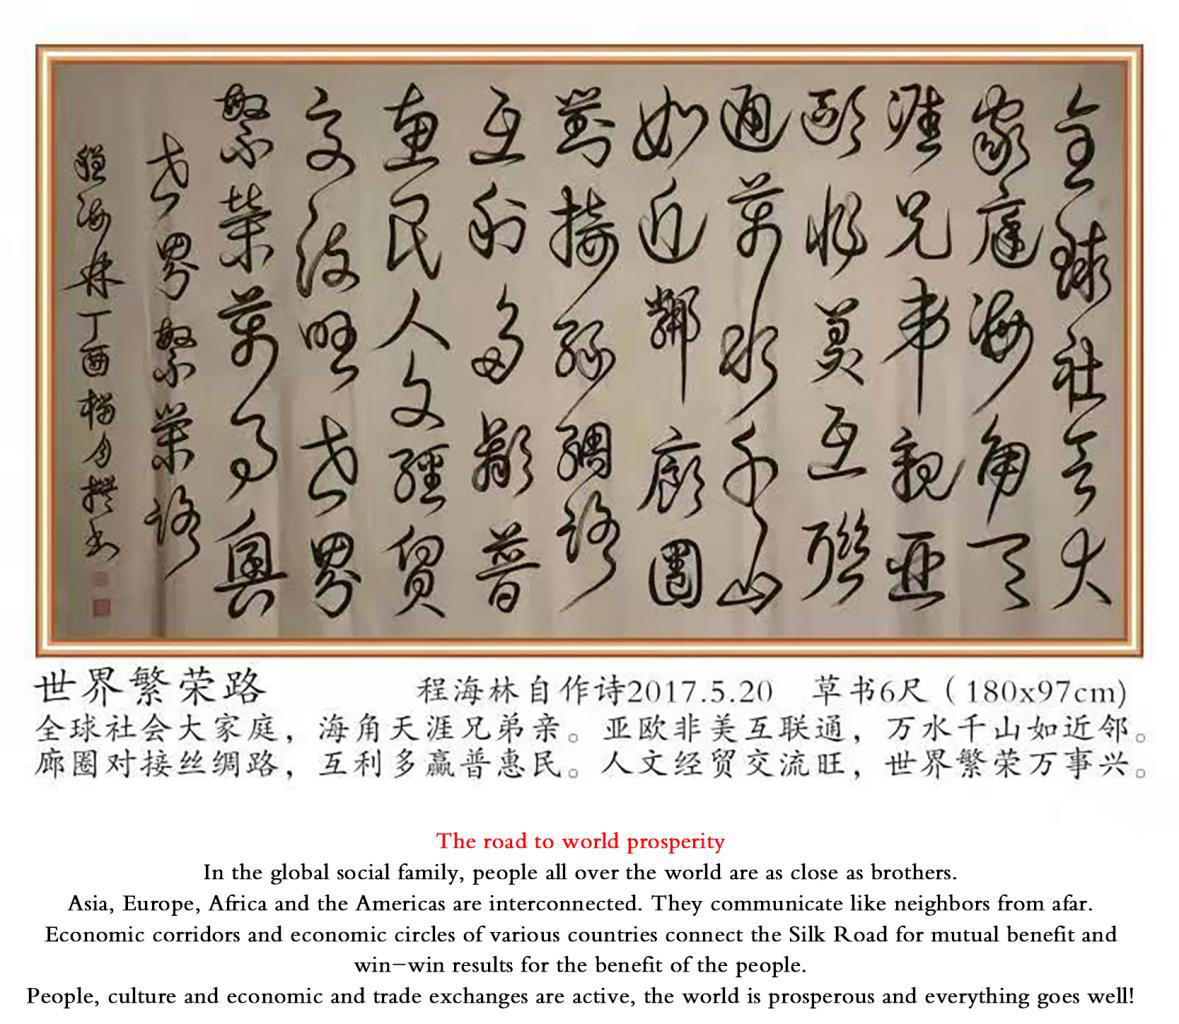 全球社会大
家庭海角天
涯兄弟親亚
歐非美互聯
通万水千山
如近鄰廊圈
對接絲綢路
互利多贏普
惠民人文經貿
交流旺世界
繁榮萬事興
世界繁榮路
程海林丁酉撰书
世界繁荣路
程海林自作诗2017.5.20 草书6尺（180x97cm)
全球社会大家庭，海角天涯兄弟亲。亚欧非美互联通，万水千山如近邻。
廊圈对接丝绸路，互利多赢普惠民。人文经贸交流旺，世界繁荣万事兴。
The road to world prosperity
In the global social family, people all over the world are as close as brothers.
Asia, Europe, Africa and the Americas are interconnected. They communicate like neighbors from afar.
Economic corridors and economic circles of various countries connect the Silk Road for mutual benefit and
win-win results for the benefit of the people.
People, culture and economic and trade exchanges are active, the world is prosperous and everything goes well!